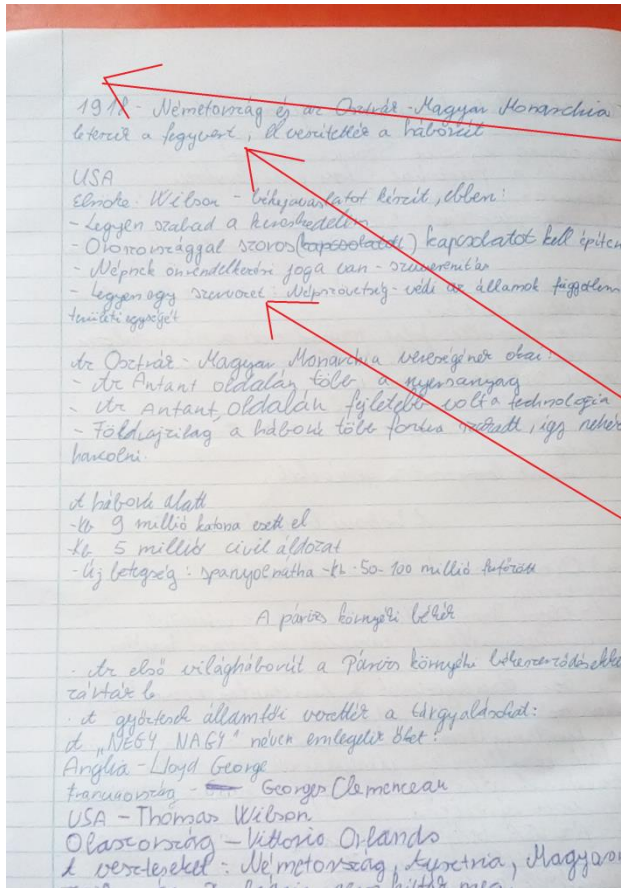 1918 - Németország és az Osztrák-Magyar Monarchia
leteszik a fegyvert, elveszítették a háborút
USA
Elnöke: Wilson - békejavaslatot készít, ebben:
- Legyen szabad a kereskedelem
- Oroszországgal szoros (kapcsolatok) kapcsolatot kell építen
- Népnek önrendelkezési joga van - szuverenitás
- Legyen egy szervezet: Népszövetség - védi az államok függetlens
területi egységét
Az Osztrák - Magyar Monarchia vereségének okai:
- Az Antant oldalán több a nyersanyag
- Az Antant oldalán fejlettebb volt a technológia
- Földrajzilag a háború több fontos, így nehéz
harcolni.
A háború alatt
- kb 9 millió katona esett el
- kb 5 millió civil áldozat
- Új betegség: spanyolnátha - kb. 50-100 millió
A párizs környéki békék
- Az első világháborút a Párizs környéki békeszerződésekke
zárták le
- A győztesek államfői vezették a tárgyalásokat:
A "NÉGY NAGY" néven emlegetik őket!
Anglia - Lloyd George
Franciaország - Georges Clemenceau
USA - Thomas Wilson
Olaszország - Vittorio Orlando
A veszteseket: Németország, Ausztria, Magyaro